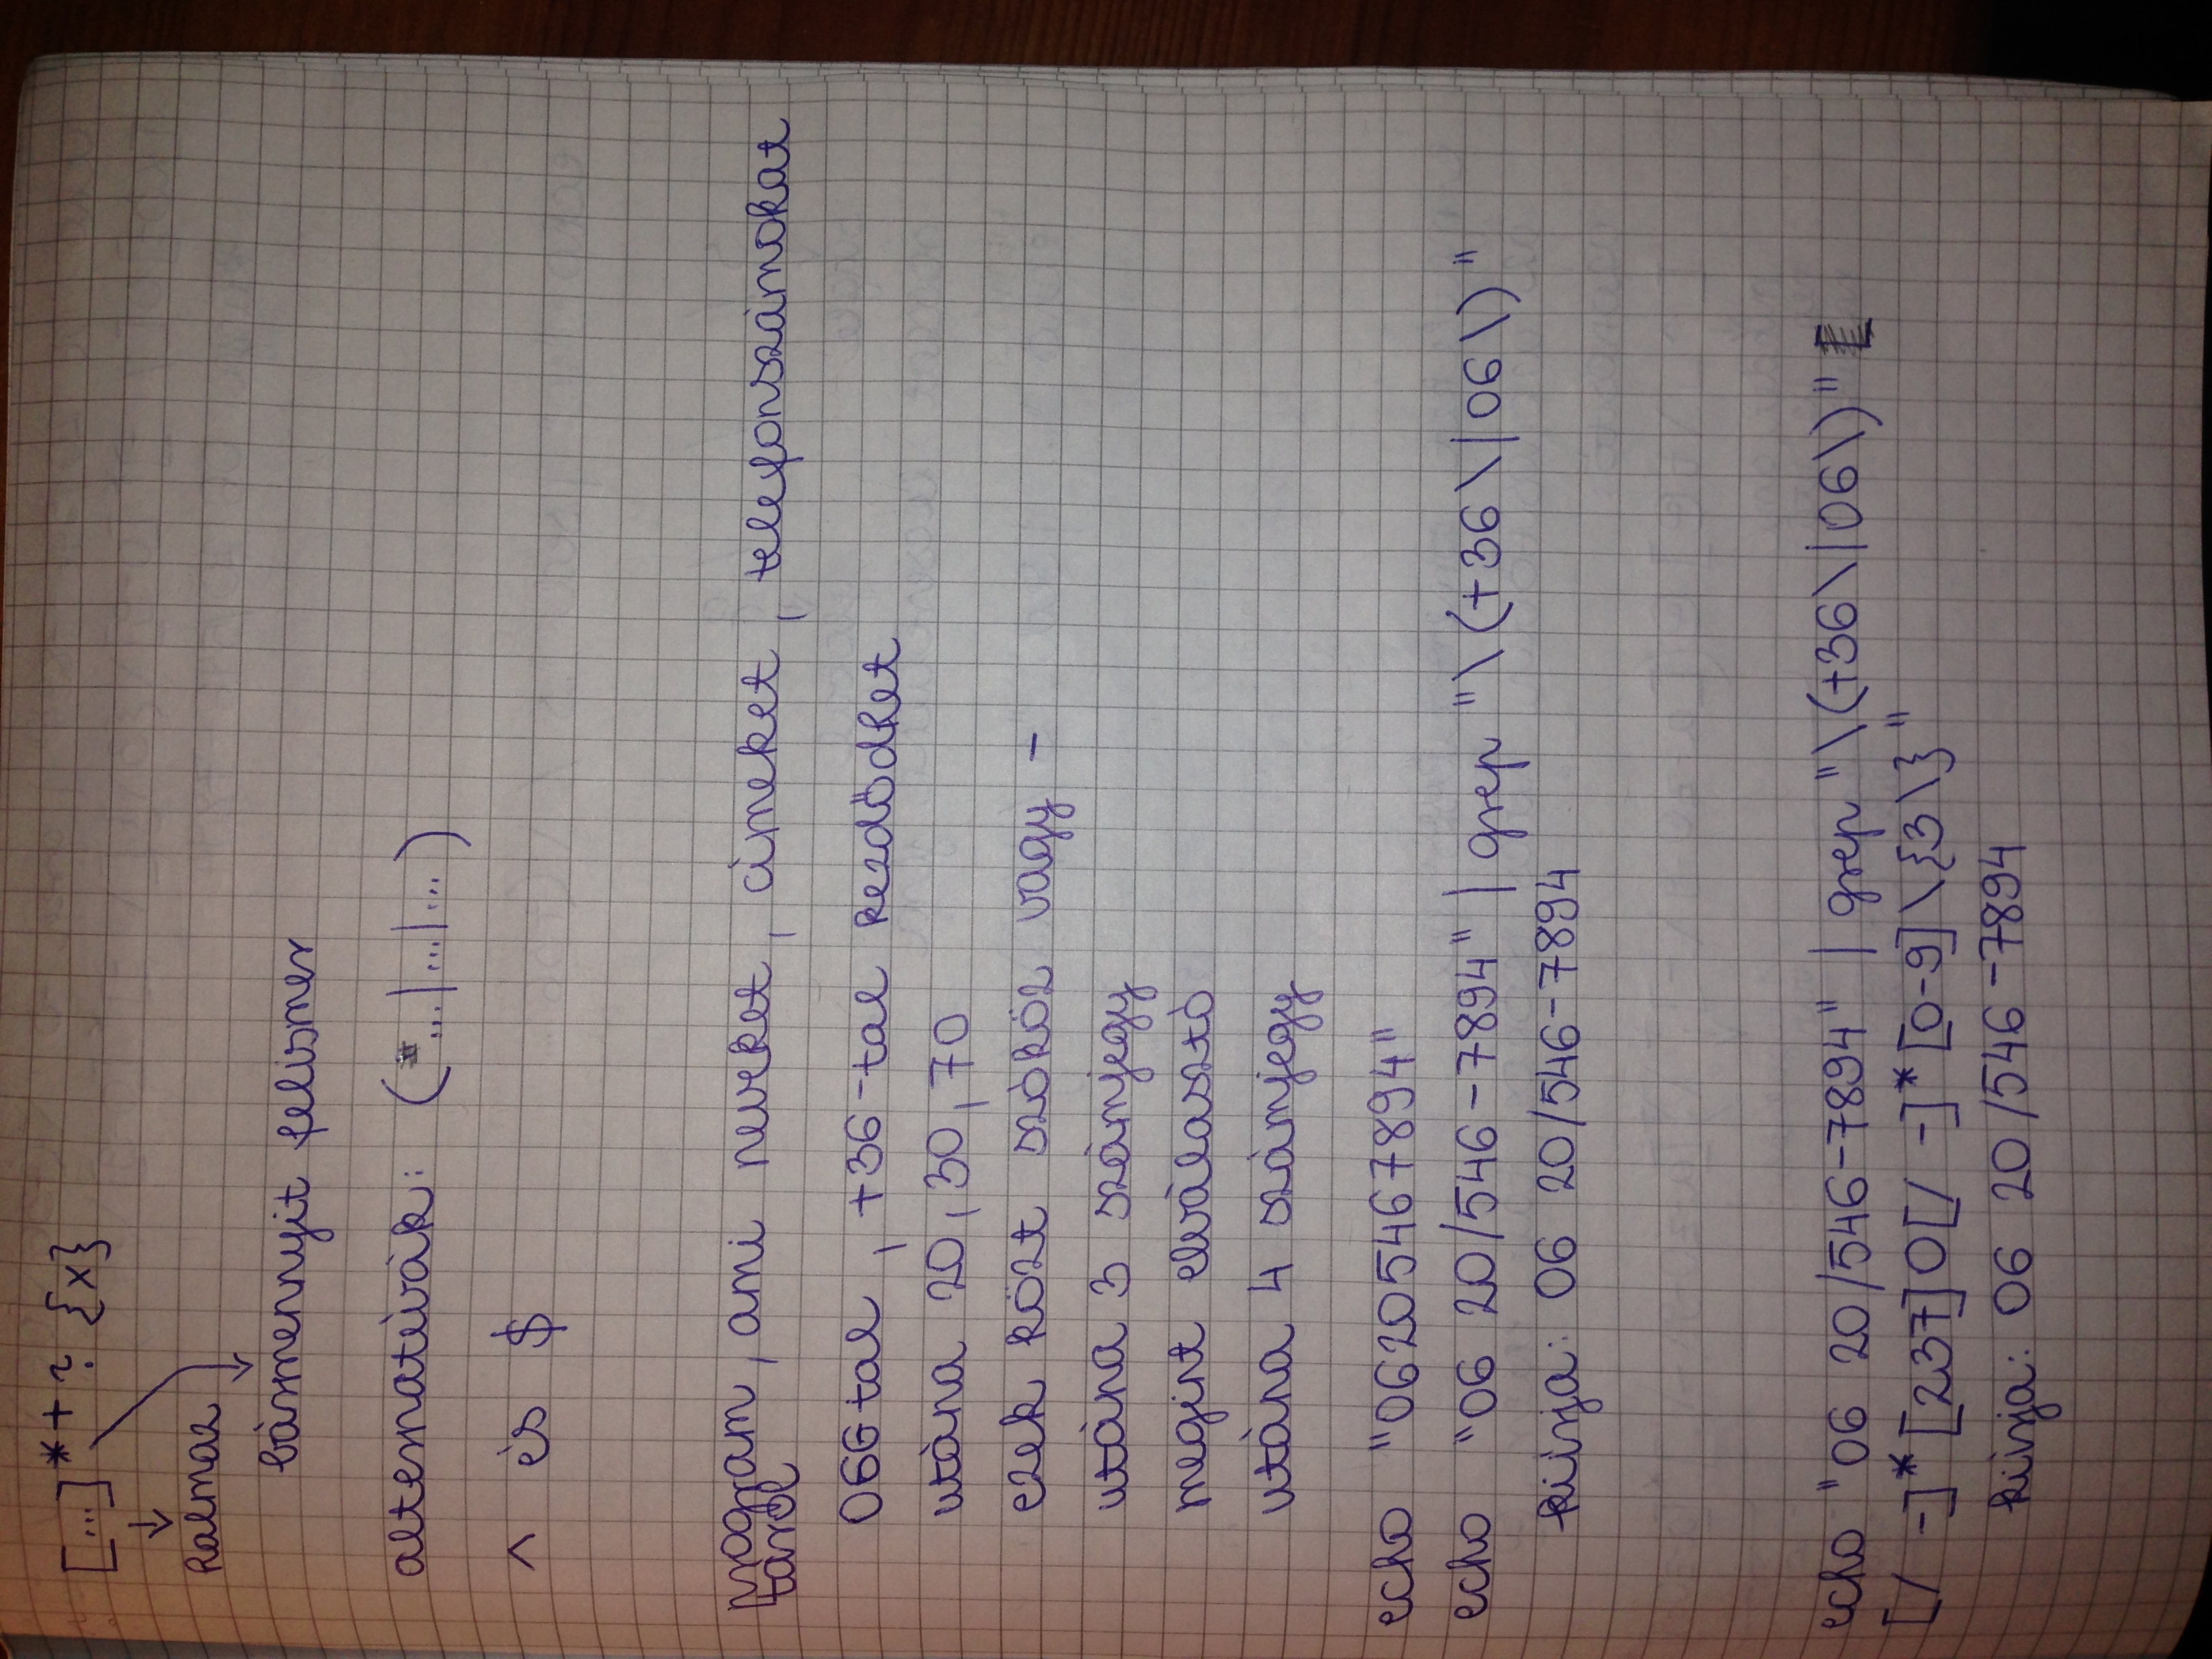 [...]* + ? {x}
halmaz
bármennyit felismer
alternatívák: (...|...|...)
^ és $
program, ami neveket, címeket, telefonszámokat
tárol
066tal, +36-tal kezdődhet
utána 20, 30, 70
ezek közt szóköz vagy -
utána 3 számjegy
megint elválasztó
utána 4 számjegy
echo "06205467894"
echo "06 20/546-7894" | grep "\(+36\|06\)"
kiírja: 06 20/546-7894
echo "06 20/546-7894" | grep "\(+36\|06\)"
[/ -]*[237]0[/ -]*[0-9]\{3\}"
kiírja: 06 20/546-7894